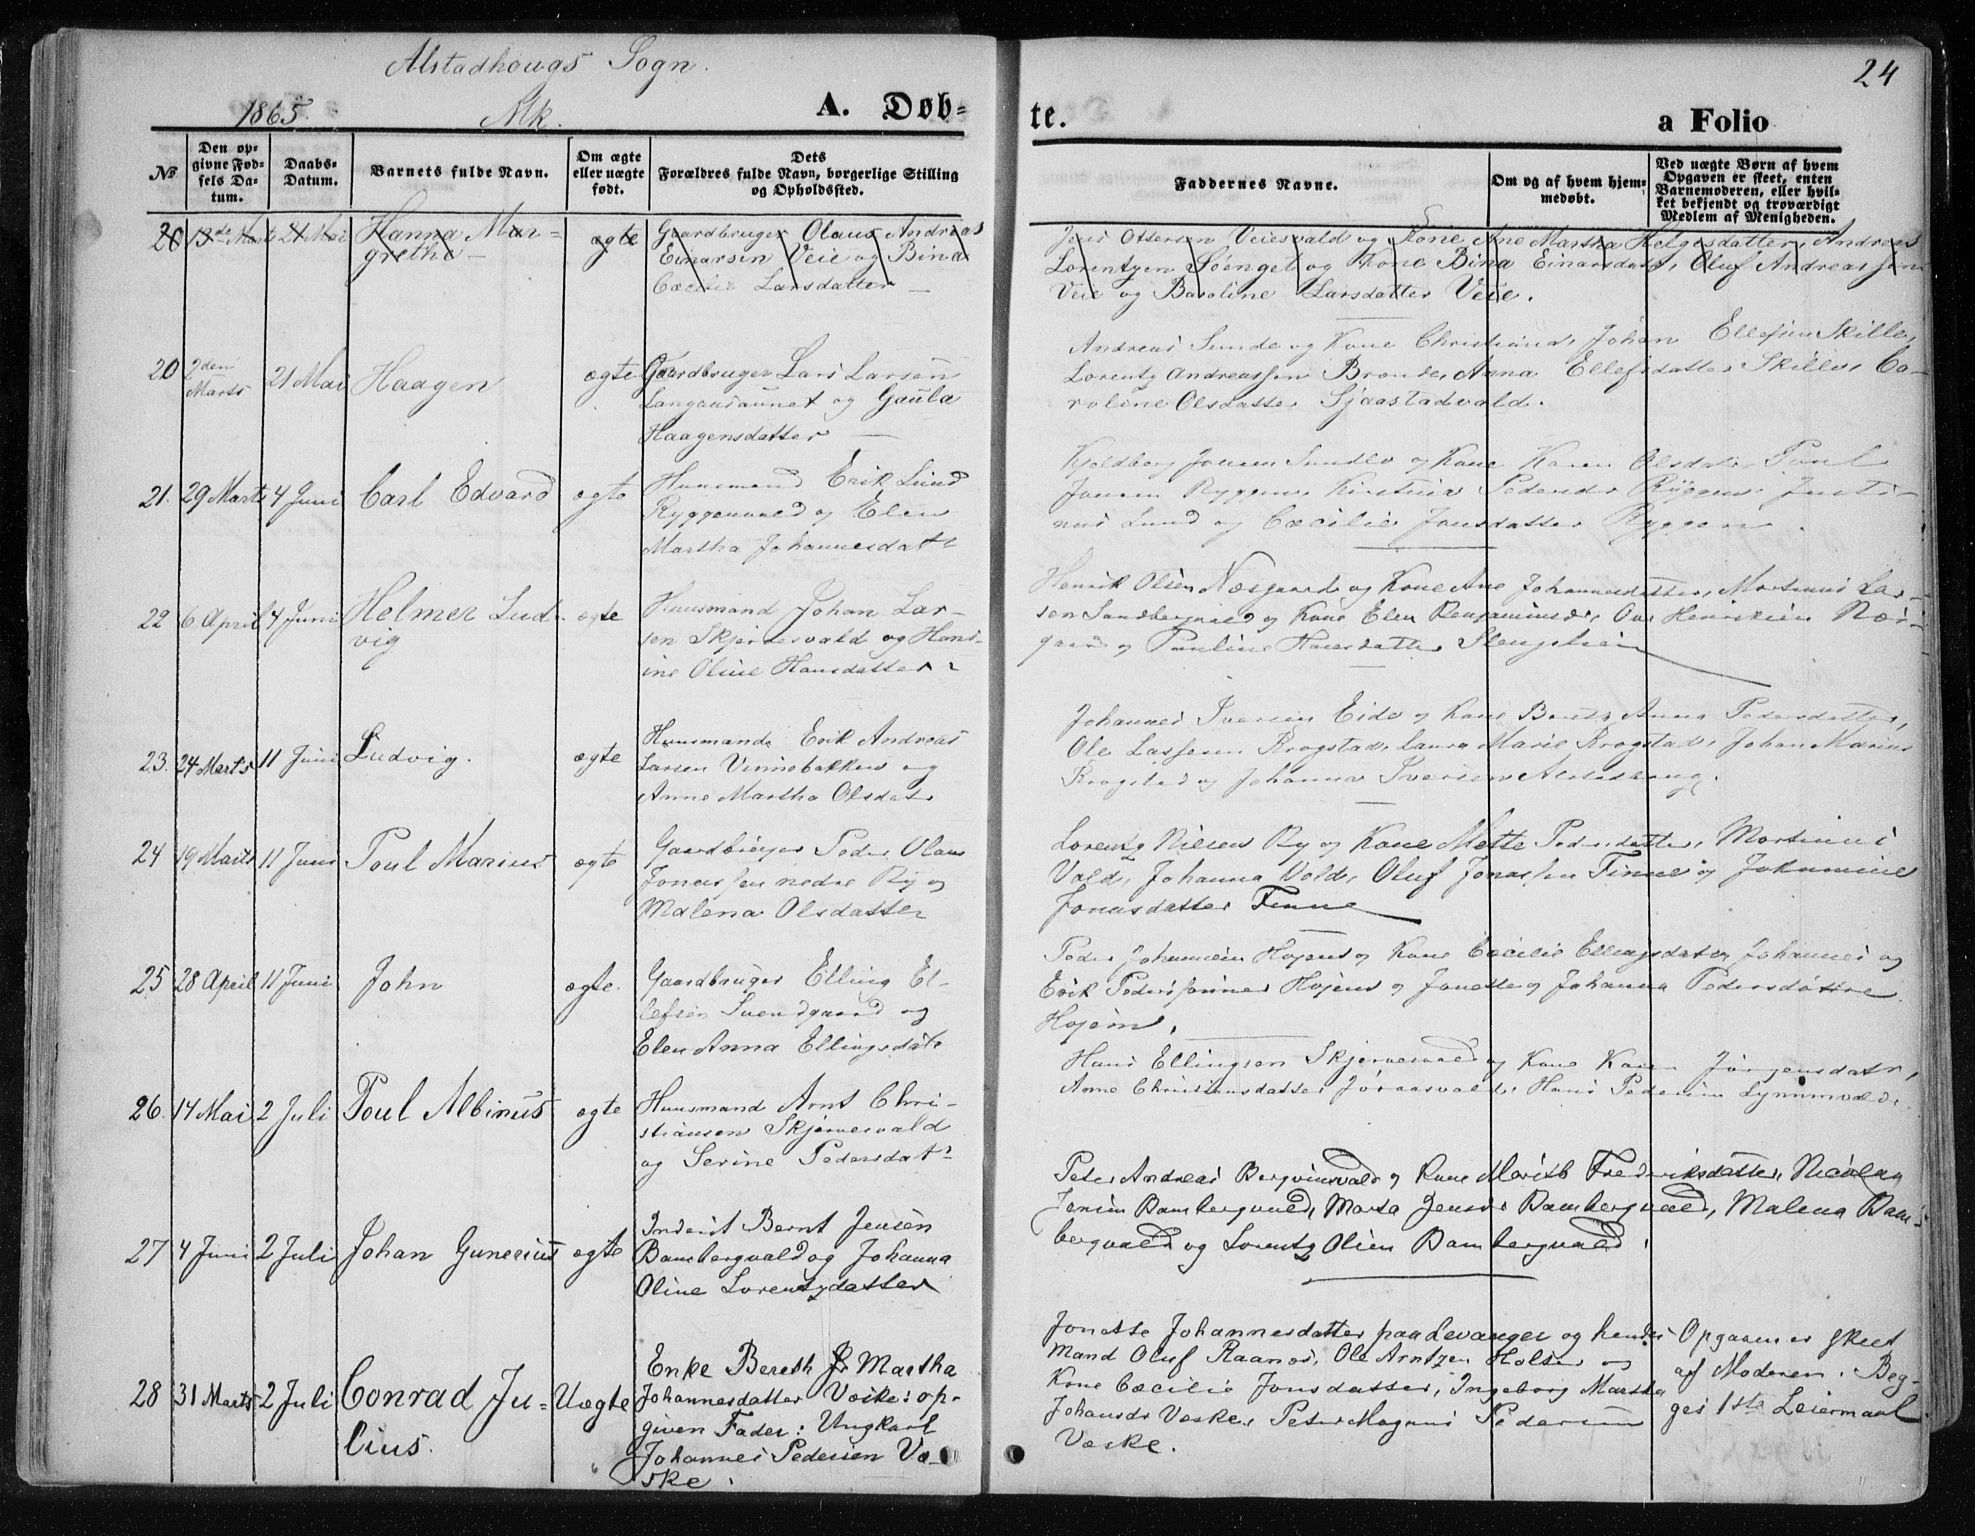 Alstadhougs Sogn.
24
1865.
Mk.
A. Døb-
te.
a Folio
№
Den op-
givne Fød-
sels Da-
tum.
Daabs-
Datum.
Barnets fulde Navn.
Om ægte
eller uægte
født.
Dets
Forældres fulde Navn, borgerlige Stilling
og Opholdssted.
Faddernes Navne.
Om og af hvem hjem-
medøbt.
Ved uægte Børn af hvem
Opgaven er skeet, enten
Barnemoderen, eller hvil-
ket bekjendt og troværdigt
Medlem af Menigheden.
20 13de Marts 21 Mai Hanna Mar-
grethe
ægte
Gaardbruger Olaus Andreas
Einarsen Veie og Bina
Cæcilie Larsdatter
Jens Ottersen Veiesvald og Kone Ane Martha Helgesdatter, Andreas
Lorentzen Søenget og Kone Bina Einarsdatt, Oluf Andreassen
Veie og Baroline Larsdatter Veie.
20 2den
Marts
21 Mai
Haagen
ægte
Gaardbruger Lars Larsen
Langaasaunet og Gaula
Haagensdatter
Andreas Sunde og Kone Christiana, Johan Ellefsen Skille,
Lorentz Andreassen Brende, Anna Ellefsdatter Skille, Ca-
roline Olsdatter Sjaastadvald.
21. 29 Marts 4 Juni Carl Edvard ægte
Huusmand Erik Lund
Ryggenvald og Elen
Martha Johannesdatr
Kjeldberg Jonsen Sundlo og Kone Karen Olsdatr Poul
Jonsen Ryggen, Kirstina Pedersdr Ryggen, Justi-
nus Lund og Cæcilie Jonsdatter Ryggen.
22 6 April 4 Juni Helmer Lud-
vig
ægte
Huusmand Johan Lar-
sen Skjernesvald og Hans-
ine Oline Hansdatter
Henrik Olsen Næsgaard og Kone Ane Johannesdatter, Martinus Lar-
sen Sundbergvald og Kone Elen Benjaminsdr, Ove Henriksen Næs-
gaard og Pauline Hansdatter
23. 24 Marts 11 Juni Ludvig. ægte
Huusmand Erik Andreas
Larsen Vinnebakken og
Anne Martha Olsdatr
Johannes Iversen Eide og Kone Bereth Anna Pedersdatter,
Ole Lassesen Krogstad, Laura Marie Krogstad, Johan Marius
Krogstad og Johanna Iversen Alstadhoug.
24 19 Marts 11 Juni Poul Marius ægte
Gaardbruger Peder Olaus
Jonassen nedre Ry og
Malena Olsdatter
Lorentz Nilsen Ry og Kone Mette Pedersdatter, Martinus
Vald, Johanna Vold, Oluf Jonassen Finne og Johannine
Jonasdatter Finne
25 28 April 11 Juni John ægte.
Gaardbruger Elling El-
lefsen Svendgaard og
Elen Anna Ellingsdatr
Peder Johannesen Hojem og Kone Cæcilie Ellingsdatr, Johannes og
Erik Pederssønner Hojem og Jonette og Johanna Pedersdøttre
Hojem.
26. 14 Mai 2 Juli Poul Albinus ægte
Huusmand Arnt Chri-
stiansen Skjernesvald
og Serine Pedersdatr
Hans Ellingsen Skjernesvald og Kone Karen Jørgensdatr,
Anne Christiansdatter Joraasvald, Hans Pedersen Lynnumvald.
27 4 Juni 2 Juli Johan Gunerius ægte
Inderst Bernt Jensen
Bambergvald og Johanna
Oline Lorentzdatter
Peter Andreas Bergvinsvald og Kone Marith Frederiksdatter, Nicolay
Jensen Bambergvald, Marta Jensdr Bambergvald, Malena Bam-
bergvald og Lorentz Olsen Bambergvald.
28 31 Marts 2 Juli Conrad Ju-
lius.
Uægte
Enke Bereth Martha
Johannesdatter Væske: op-
given Fader: Ungkarl
Johannes Pedersen Væ-
ske.
Jonette Johannesdatter paa Levanger og hendes
Mand Oluf Raanes, Ole Arntzen Holse og
Kone Cæcilie Jonsdatter, Ingeborg Martha
Johansdr Væske, Peter Magnus Pedersen
Væske.
Opgaven er skeet
af Moderen. Beg-
ges 1ste Leiermaal.